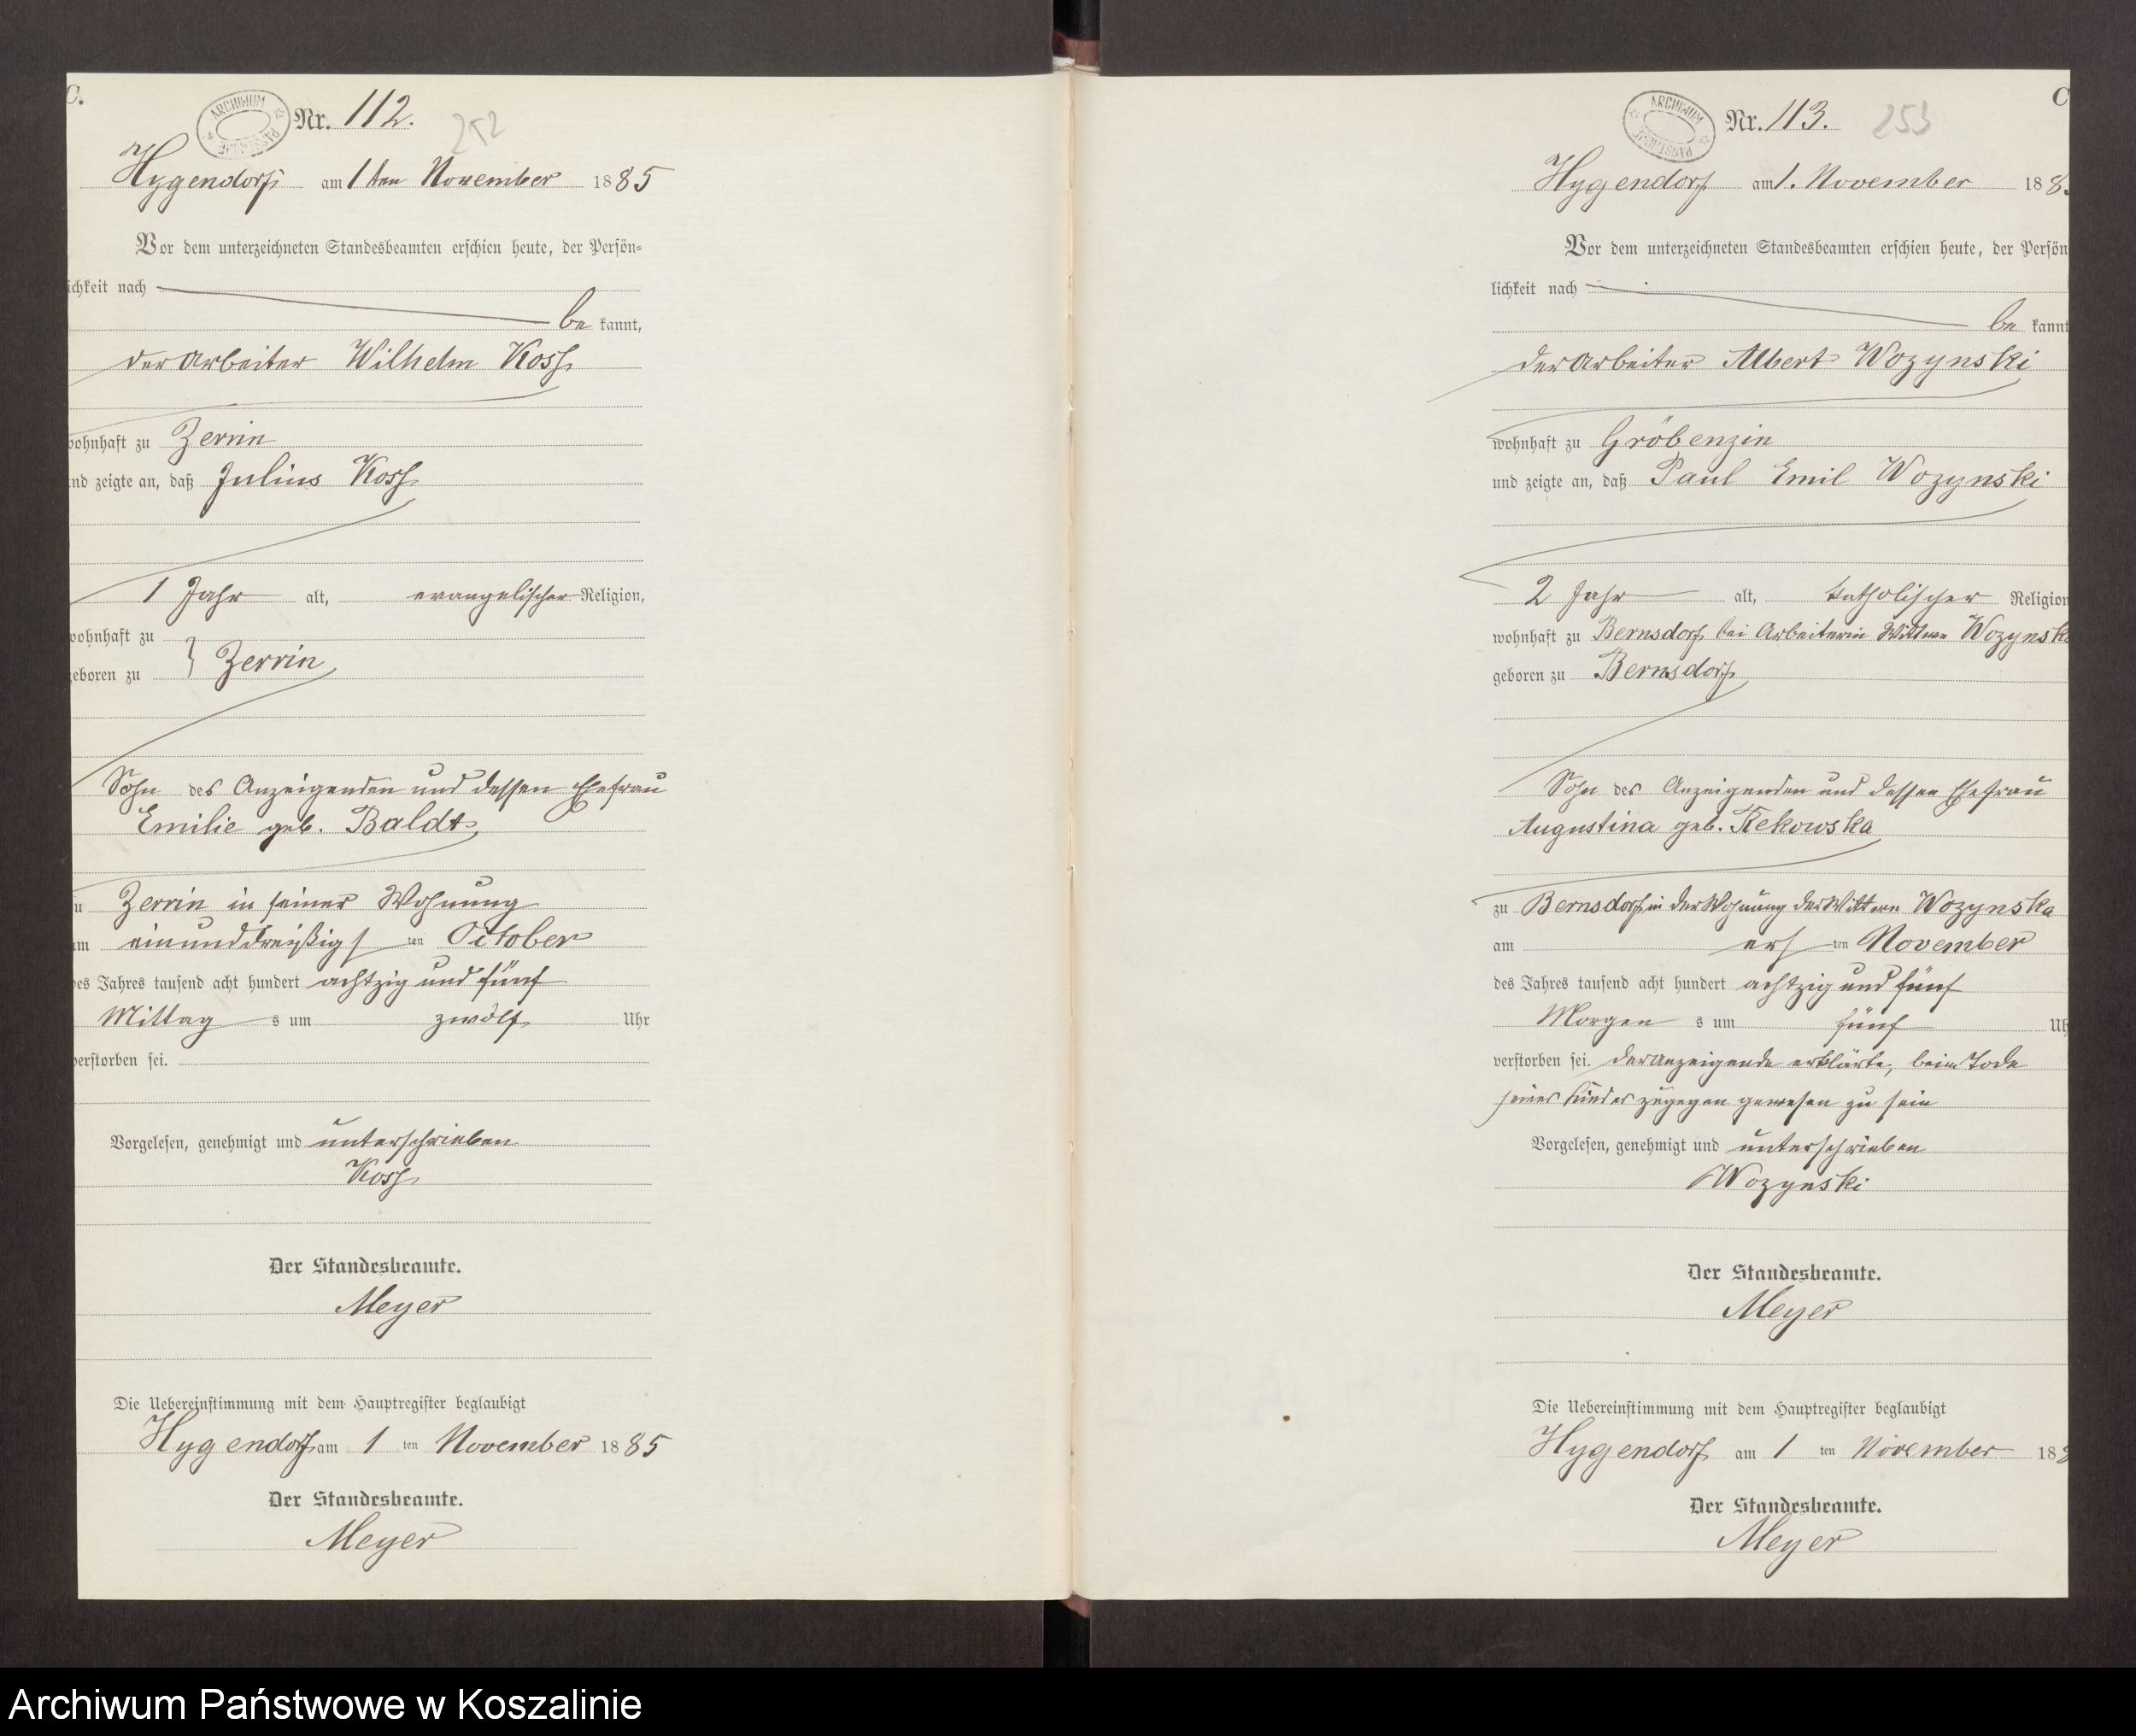 C.
ARCHIWUM PAŃSTWOWE
Nr. 112.
252
Hygendorf am 1ten November 1885
Vor dem unterzeichneten Standesbeamten erschien heute, der Persön-
ichkeit nach
be kannt,
der Arbeiter Wilhelm Koss
wohnhaft zu Zerrin
und zeigte an, daß Julius Koss
1 Jahr alt, evangelischer Religion,
wohnhaft zu
geboren zu } Zerrin
Sohn des Anzeigenden und dessen Ehefrau
Emilie geb. Baldt
zu Zerrin in seiner Wohnung
am einunddreißigsten October
des Jahres tausend acht hundert achtzig und fünf
Mittag s um zwölf Uhr
verstorben sei.
Vorgelesen, genehmigt und unterschrieben
Koss
Der Standesbeamte.
Meyer
Die Uebereinstimmung mit dem Hauptregister beglaubigt
Hygendorf am 1 ten November 1885
Der Standesbeamte.
Meyer
C
ARCHIWUM PAŃSTWOWE
Nr. 113.
253
Hygendorf am 1. November 188
Vor dem unterzeichneten Standesbeamten erschien heute, der Persön
lichkeit nach
be kannt
der Arbeiter Albert Wozynski
wohnhaft zu Gröbenzin
und zeigte an, daß Paul Emil Wozynski
2 Jahr alt, katholischer Religion
wohnhaft zu Bernsdorf bei Arbeiterin Wittwe Wozynska
geboren zu Bernsdorf
Sohn des Anzeigenden und dessen Ehefrau
Augustina geb. Rekowska
zu Bernsdorf in der Wohnung der Wittwe Wozynska
am ersten November
des Jahres tausend acht hundert achtzig und fünf
Morgen s um fünf Uh
verstorben sei. der Anzeigende erklärte, beim Tode
seines Kindes zugegen gewesen zu sein
Vorgelesen, genehmigt und unterschrieben
Wozynski
Der Standesbeamte.
Meyer
Die Uebereinstimmung mit dem Hauptregister beglaubigt
Hygendorf am 1 ten November 188
Der Standesbeamte.
Meyer
Archiwum Państwowe w Koszalinie